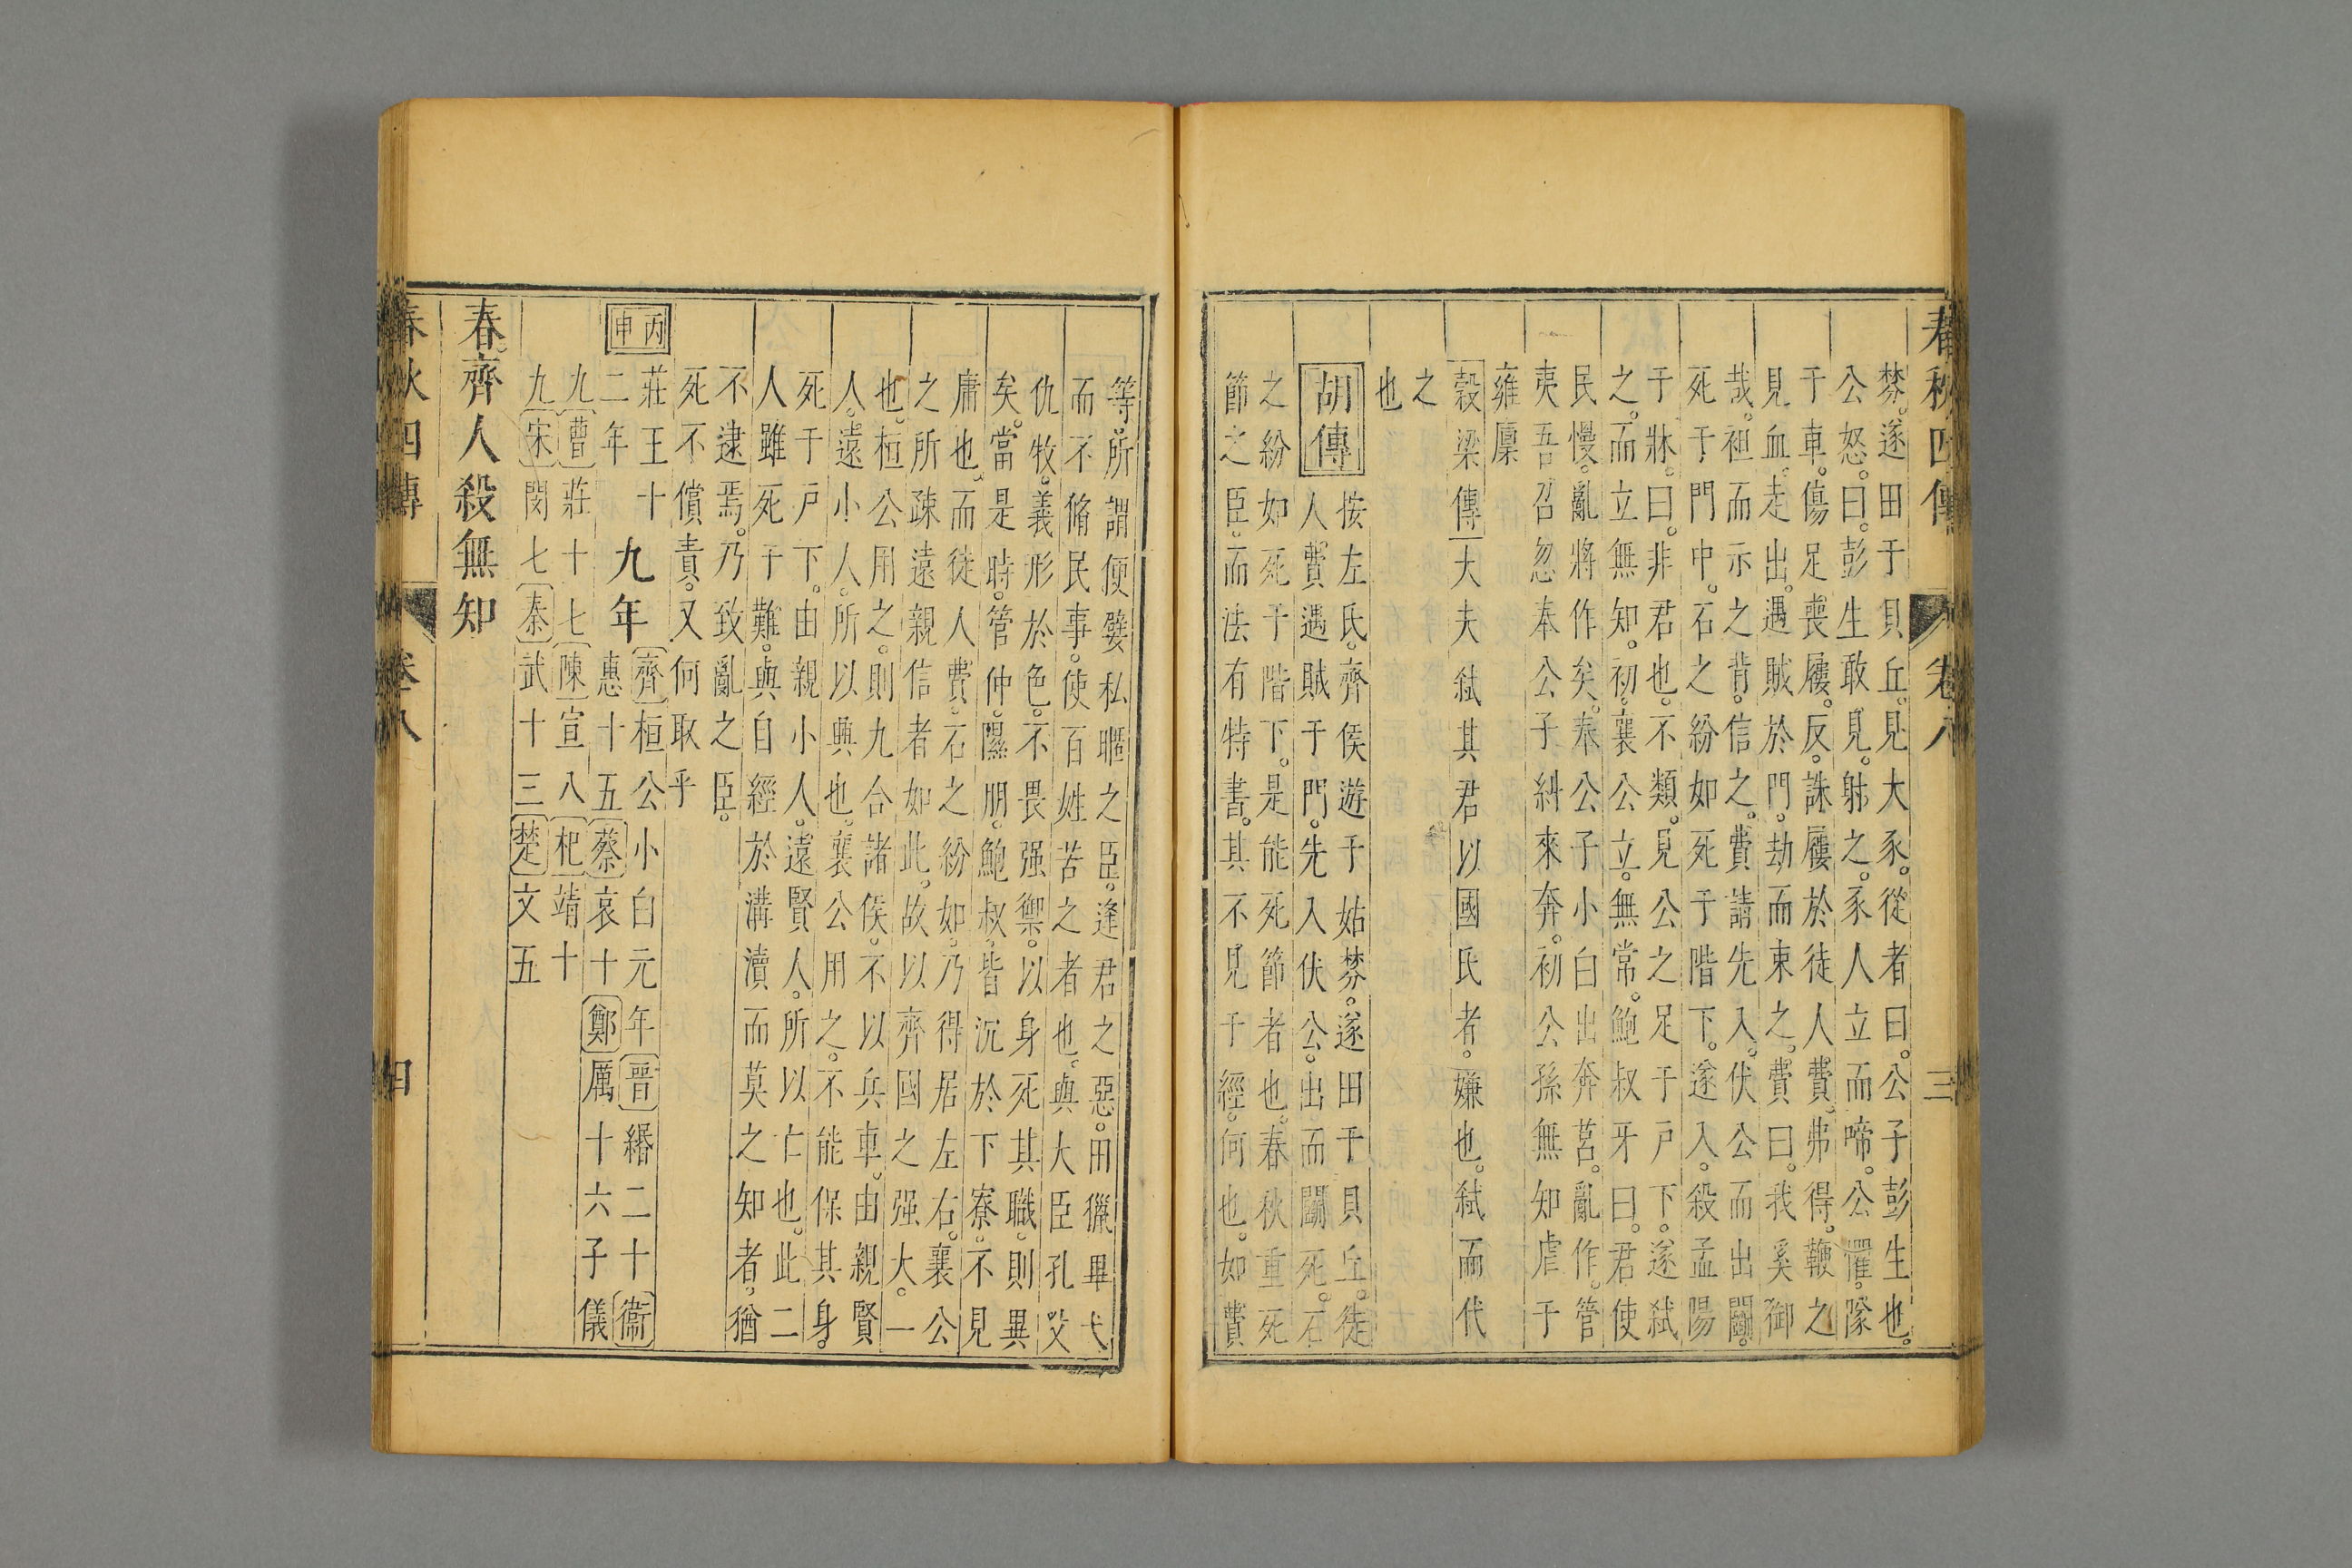 春秋四傳 卷八 三
棼。遂田于貝丘。見大豕。從者曰。公子彭生也。
公怒。曰。彭生敢見。射之。豕人立而啼。公懼。隊
于車。傷足喪屨。反。誅屨於徒人費。弗得。鞭之
見血。走出。遇賊於門。劫而束之。費曰。我奚御
哉。袒而示之背。信之。費請先入。伏公而出鬬。
死于門中。石之紛如死于階下。遂入。殺孟陽
于牀。曰。非君也。不類。見公之足于戶下。遂弑
之。而立無知。初。襄公立。無常。鮑叔牙曰。君使
民慢。亂將作矣。奉公子小白出奔莒。亂作。管
夷吾召忽奉公子糾來奔。初公孫無知虐于
雍廩
穀梁傳 大夫弑其君以國氏者。嫌也。弑而代
之
也
胡傳 按左氏。齊侯遊于姑棼。遂田于貝丘。徒
人費遇賊于門。先入伏公。出而鬬死。石
之紛如死于階下。是能死節者也。春秋重死
節之臣。而法有特書。其不見于經。何也。如費
等。所謂便嬖私暱之臣。逢君之惡。田獵畢弋
而不脩民事。使百姓苦之者也。與大臣孔父
仇牧。義形於色。不畏强禦。以身死其職。則異
矣。當是時。管仲。隰朋。鮑叔。皆沉於下寮。不見
庸也。而徒人費。石之紛如。乃得居左右。襄公
之所疎遠親信者如此。故以齊國之强大。一
也。桓公用之。則九合諸侯。不以兵車。由親賢
人。遠小人。所以興也。襄公用之。不能保其身。
死于戶下。由親小人。遠賢人。所以亡也。此二
人雖死于難。與自經於溝瀆而莫之知者。猶
不逮焉。乃致亂之臣。
死不償責。又何取乎
丙申
莊王十
二年
九年
齊桓公小白元年 晉緡二十 衞
惠十五 蔡哀十 鄭厲十六子儀
九 曹莊十七 陳宣八 杞靖十
九 宋閔七 秦武十三 楚文五
春齊人殺無知
春秋四傳 卷八 四